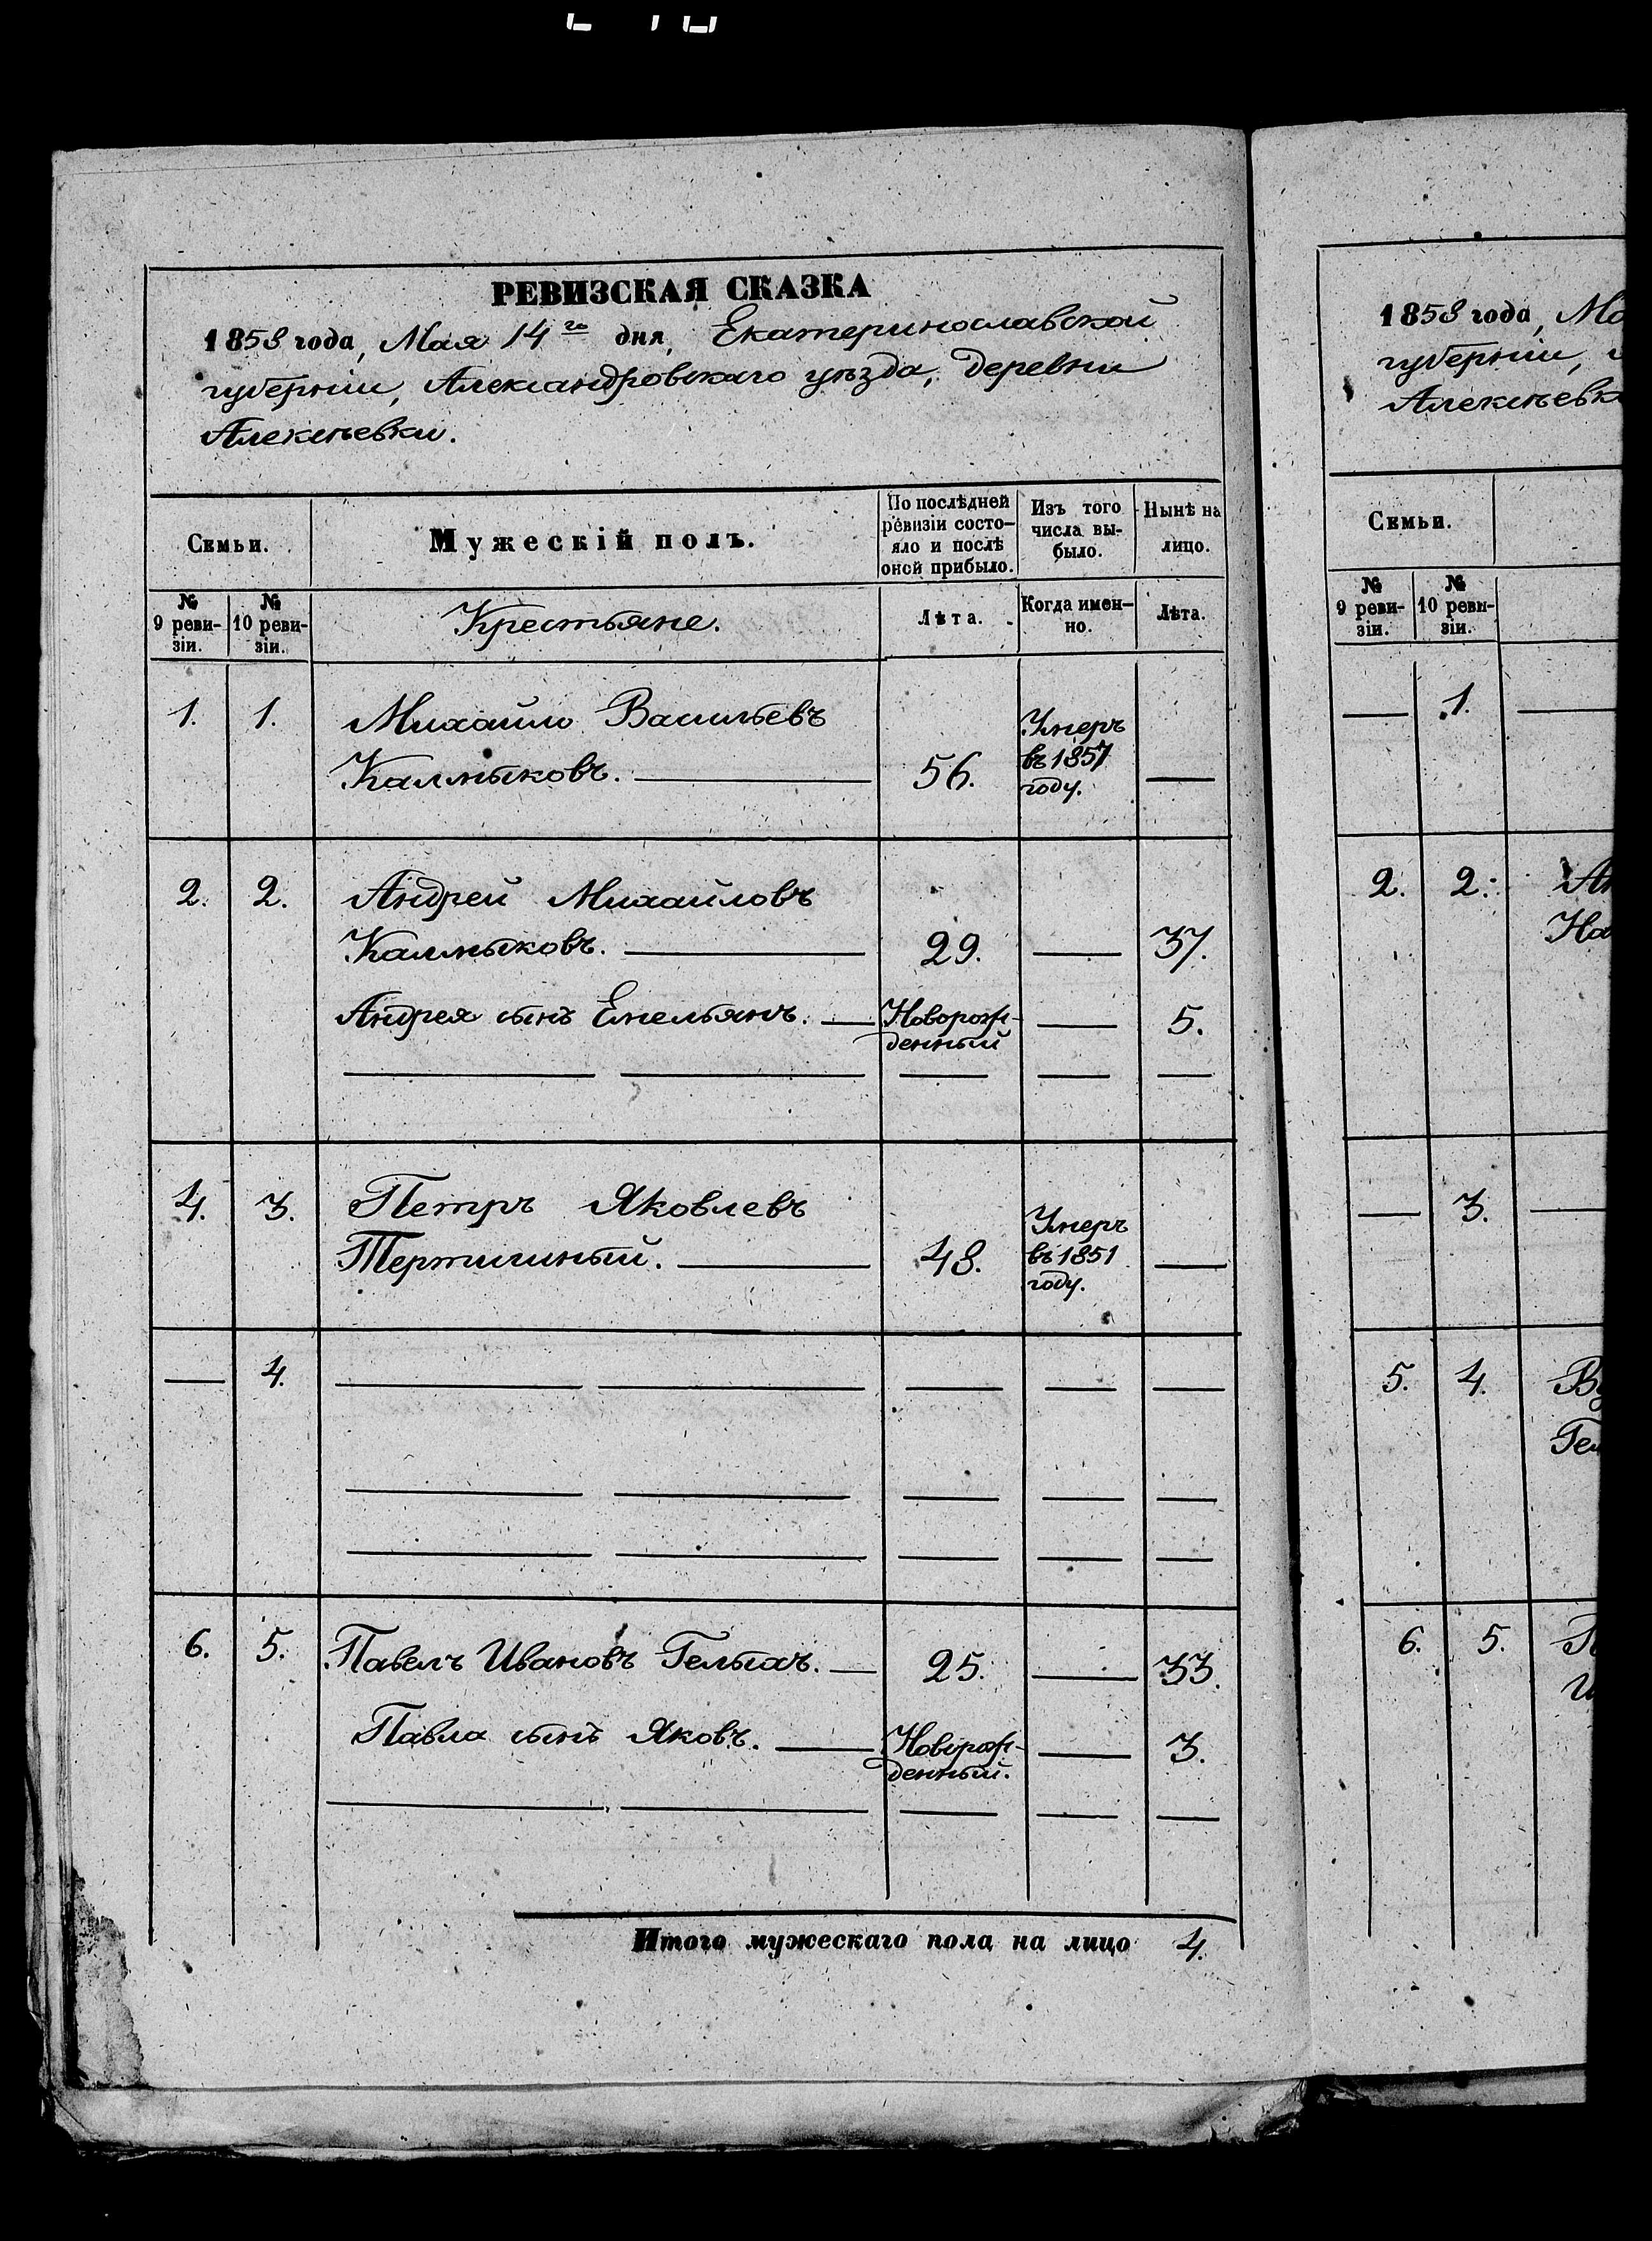 РЕВИЗСКАЯ СКАЗКА
1858 года, Мая 14го дня, Екатеринославской
губерніи, Александровскаго уѣзда, деревни
Алексѣевки.
Семьи.
Мужескій полъ.
По послѣдней
ревизіи состо-
яло и послѣ
оной прибыло.
Изъ того
числа вы-
было.
Нынѣ на
лицо.
№
9 реви-
зіи.
№
10 реви-
зіи.
Крестьяне.
Лѣта.
Когда имен-
но.
Лѣта.
1. 1. Михайло Васильевъ
Калмыковъ. 56. Умеръ
въ 1857
году.
2. 2. Андрей Михайловъ
Калмыковъ. 29. 37.
Андрея сынъ Емельянъ. Новорож-
денный 5.
4. 3. Петръ Яковлевъ
Тертишный. 48. Умеръ
въ 1851
году.
4.
6. 5. Павелъ Ивановъ 25. 33.
Павла сынъ Яковъ. Новорож-
денный. 3.
Итого мужескаго пола на лицо 4.
1858 года,
губерніи,
Семьи.
№
9 реви-
зіи.
№
10 реви-
зіи.
1.
2. 2.
3.
5. 4.
6. 5.